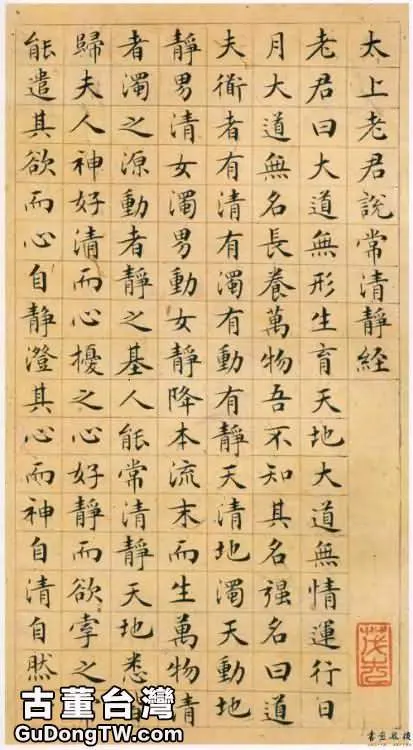 太上老君說常清靜経
老君曰大道無形生育天地大道無情運行日
月大道無名長養萬物吾不知其名强名曰道
夫衜者有清有濁有動有靜天清地濁天動地
靜男清女濁男動女靜降本流末而生萬物清
者濁之源動者靜之基人能常清靜天地悉
歸夫人神好清而心擾之心好靜而欲牽之
能遣其欲而心自静澄其心而神自清自然
古董台灣
GuDongTW.com